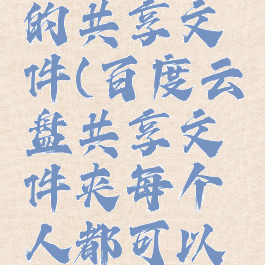 的共享文
件(百度云
盘共享文
件夹每个
人都可以